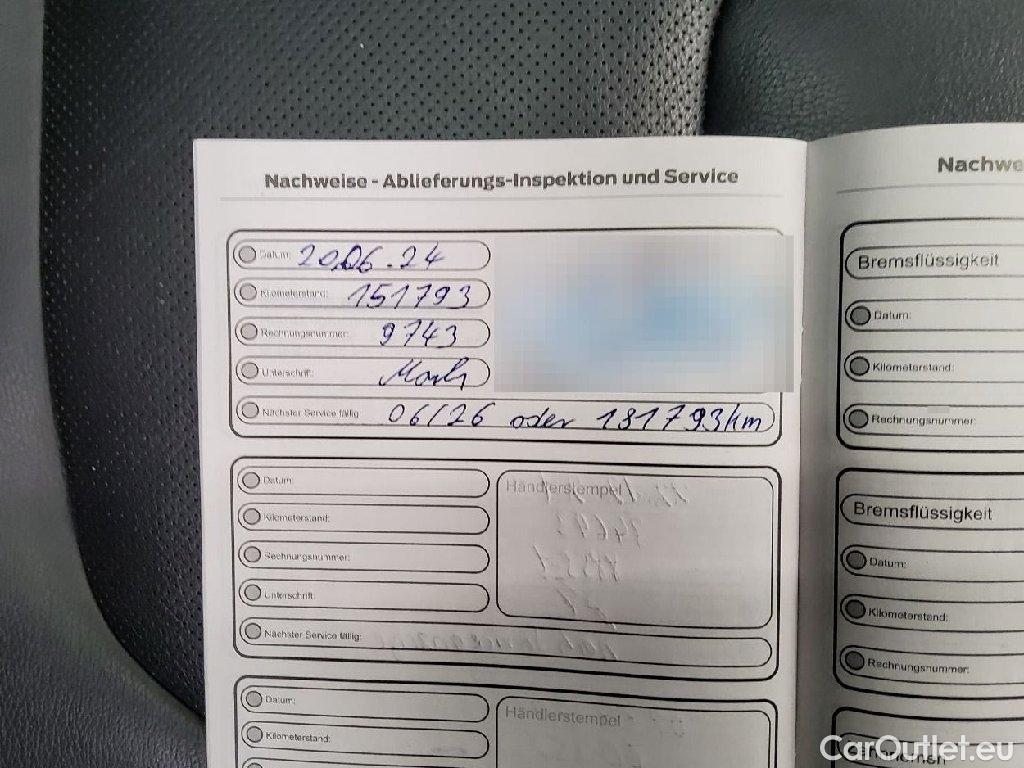 Nachweise - Ablieferungs-Inspektion und Service
Datum: 20.06.24
Kilometerstand: 151793
Rechnungsnummer: 9743
Unterschrift:
Nächster Service fällig 06/26 oder 181793km
Datum:
Kilometerstand:
Rechnungsnummer:
Unterschrift:
Nächster Service fällig:
Händlerstempel
Datum:
Kilometerstand:
Händlerstempel
Nachwe
Bremsflüssigkeit
Datum:
Kilometerstand:
Rechnungsnummer:
Bremsflüssigkeit
Datum:
Kilometerstand:
Rechnungsnummer:
CarOutlet.eu